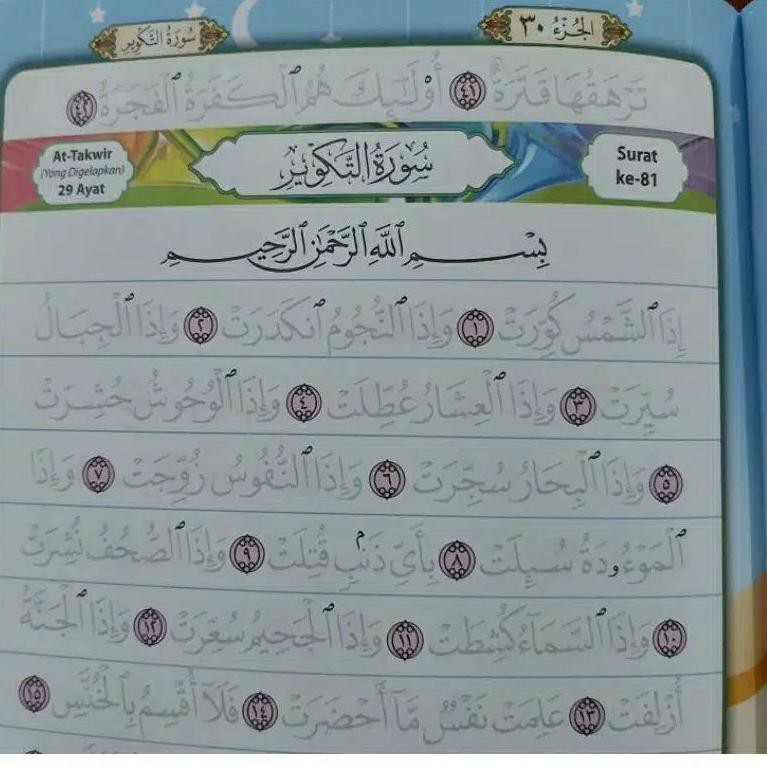 الجزء ٣٠
سورة التكوير
تَرْهَقُهَا قَتَرَةٌ ٤١ أُو۟لَٰٓئِكَ هُمُ ٱلْكَفَرَةُ ٱلْفَجَرَةُ ٤٢
Surat
ke-81
سُورَةُ التَّكْوِيرِ
At-Takwir
(Yang Digelapkan)
29 Ayat
بِسْمِ ٱللَّهِ ٱلرَّحْمَٰنِ ٱلرَّحِيمِ
إِذَا ٱلشَّمْسُ كُوِّرَتْ ١ وَإِذَا ٱلنُّجُومُ ٱنكَدَرَتْ ٢ وَإِذَا ٱلْجِبَالُ
سُيِّرَتْ ٣ وَإِذَا ٱلْعِشَارُ عُطِّلَتْ ٤ وَإِذَا ٱلْوُحُوشُ حُشِرَتْ
٥ وَإِذَا ٱلْبِحَارُ سُجِّرَتْ ٦ وَإِذَا ٱلنُّفُوسُ زُوِّجَتْ ٧ وَإِذَا
ٱلْمَوْءُۥدَةُ سُئِلَتْ ٨ بِأَىِّ ذَنۢبٍ قُتِلَتْ ٩ وَإِذَا ٱلصُّحُفُ نُشِرَتْ
١٠ وَإِذَا ٱلسَّمَآءُ كُشِطَتْ ١١ وَإِذَا ٱلْجَحِيمُ سُعِّرَتْ ١٢ وَإِذَا ٱلْجَنَّةُ
أُزْلِفَتْ ١٣ عَلِمَتْ نَفْسٌ مَّآ أَحْضَرَتْ ١٤ فَلَآ أُقْسِمُ بِٱلْخُنَّسِ ١٥